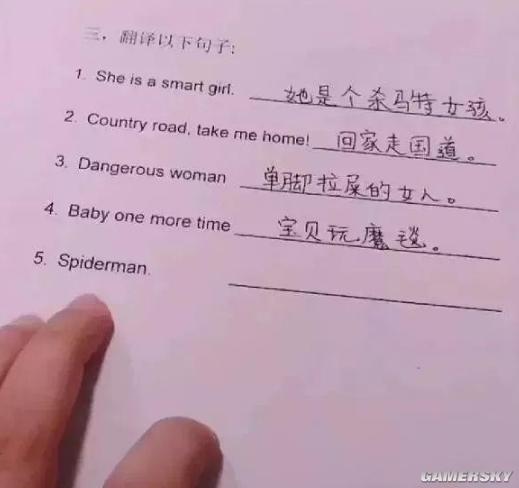 三，翻译以下句子:
1. She is a smart girl. 她是个杀马特女孩。
2. Country road, take me home! 回家走国道。
3. Dangerous woman 单脚拉屎的女人。
4. Baby one more time 宝贝玩魔毯。
5. Spiderman.
GAMERSKY